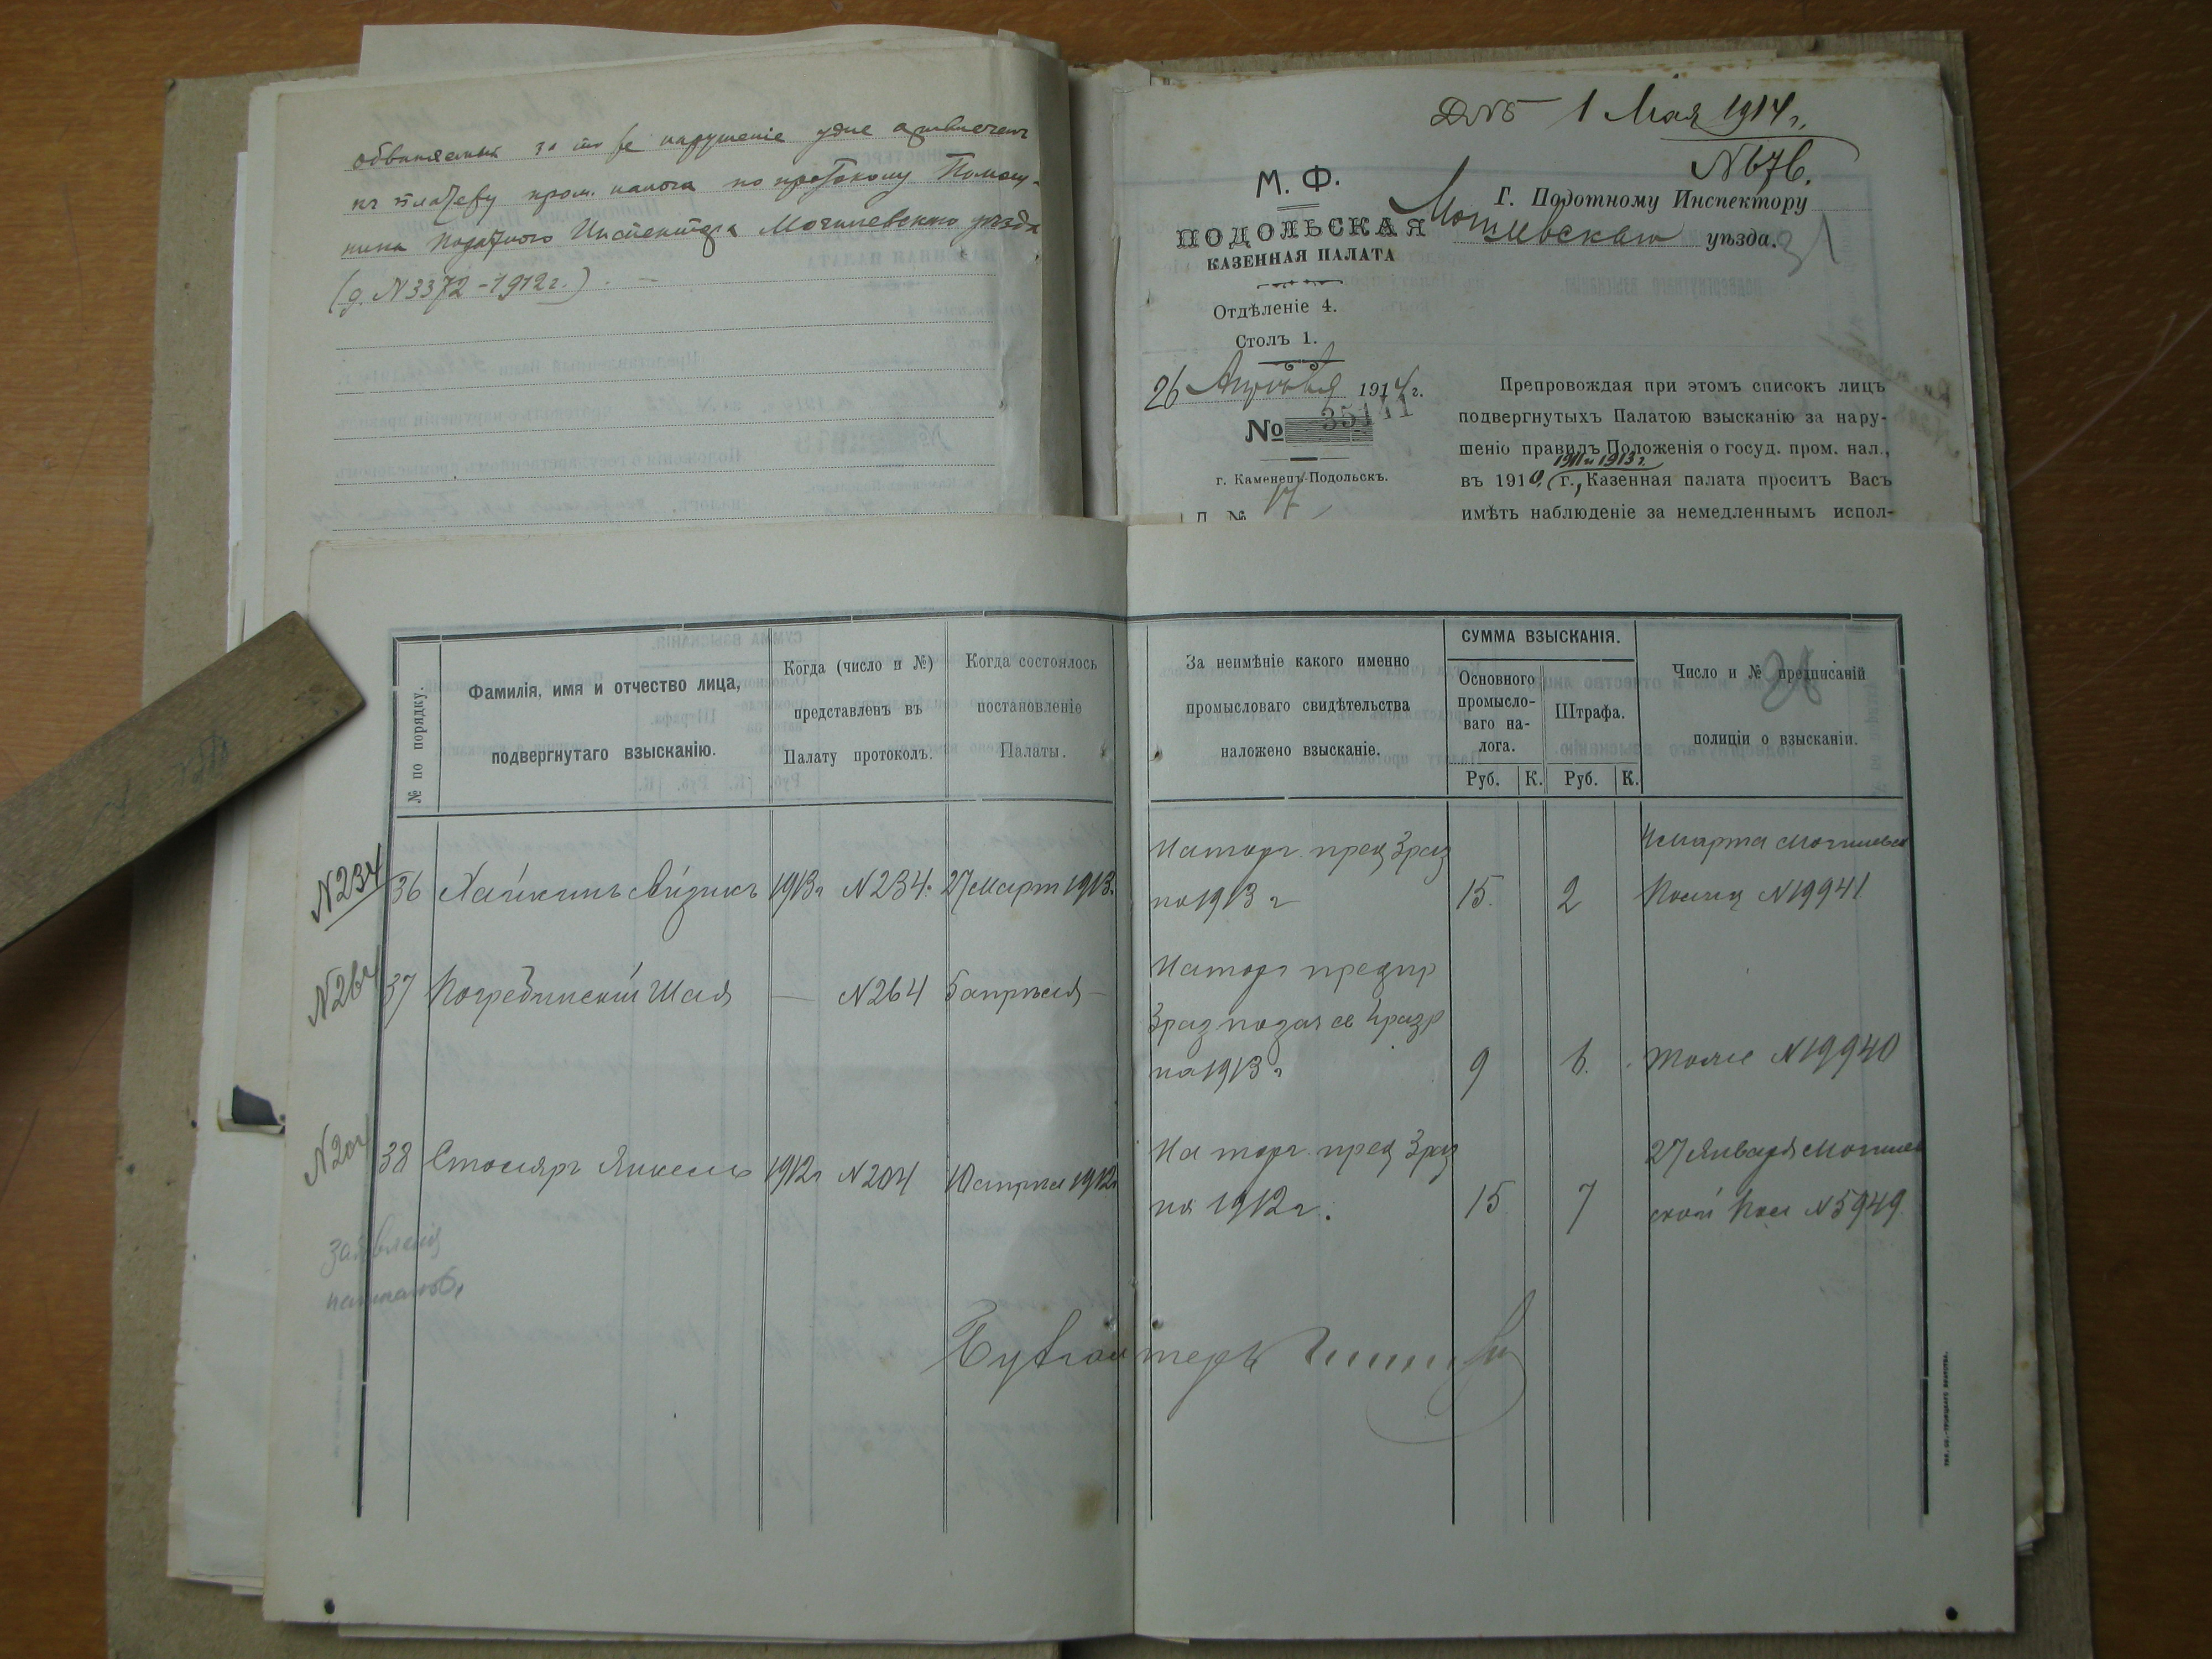 обвиняемый за то же нарушеніе уже привлеченъ
къ платежу пром. налога по протоколу Помощ-
ника Податного Инспектора Могилевскаго уѣзда
(д. N 3372 - 1912 г.). —
1 Мая 1914 г.
N 676.
М. Ф.
ПОДОЛЬСКАЯ
КАЗЕННАЯ ПАЛАТА
Отдѣленіе 4.
Столъ 1.
26 Апрѣля 1914 г.
№ 35141
г. Каменецъ-Подольскъ.
Д. № 17
Г. Подотному Инспектору
Могилевскаго уѣзда.
31
Препровождая при этомъ списокъ лицъ
подвергнутыхъ Палатою взысканію за нару-
шеніо правилъ Положенія о госуд. пром. нал.,
1911 и 1913 г.
въ 1910, г., Казенная палата проситъ Васъ
имѣть наблюденіе за немедленнымъ испол-
№ по порядку.
Фамилія, имя и отчество лица,
подвергнутаго взысканію.
Когда (число и №)
представленъ въ
Палату протоколъ.
Когда состоялось
постановленіе
Палаты.
За неимѣніе какого именно
промысловаго свидѣтельства
наложено взысканіе.
СУММА ВЗЫСКАНІЯ.
Основного
промысло-
ваго на-
лога.
Штрафа.
Руб. К. Руб. К.
Число и № предписаній
полиціи о взысканіи.
N 234
36 Хайкинъ Айзикъ 1913 г N 234. 27 Март 1913.
На торг. пред 3 раз
на 1913 г 15. 2
Марта Могилевск
Полиц N 19941
N 264
37 Погребинскій Шая — N 264 5 апрѣля —
На торг предпр
3 раз подая св 4 разр
на 1913 г 9 6. тоже N 19940
N 204
38 Столяръ Янкель 1912 г N 204 10 апрѣля 1912 г
На торг. пред 3 раз
на 1912 г. 15. 7
27 Января Могилев
ской Пол N 5949.
заявленія
Бухгалтеръ